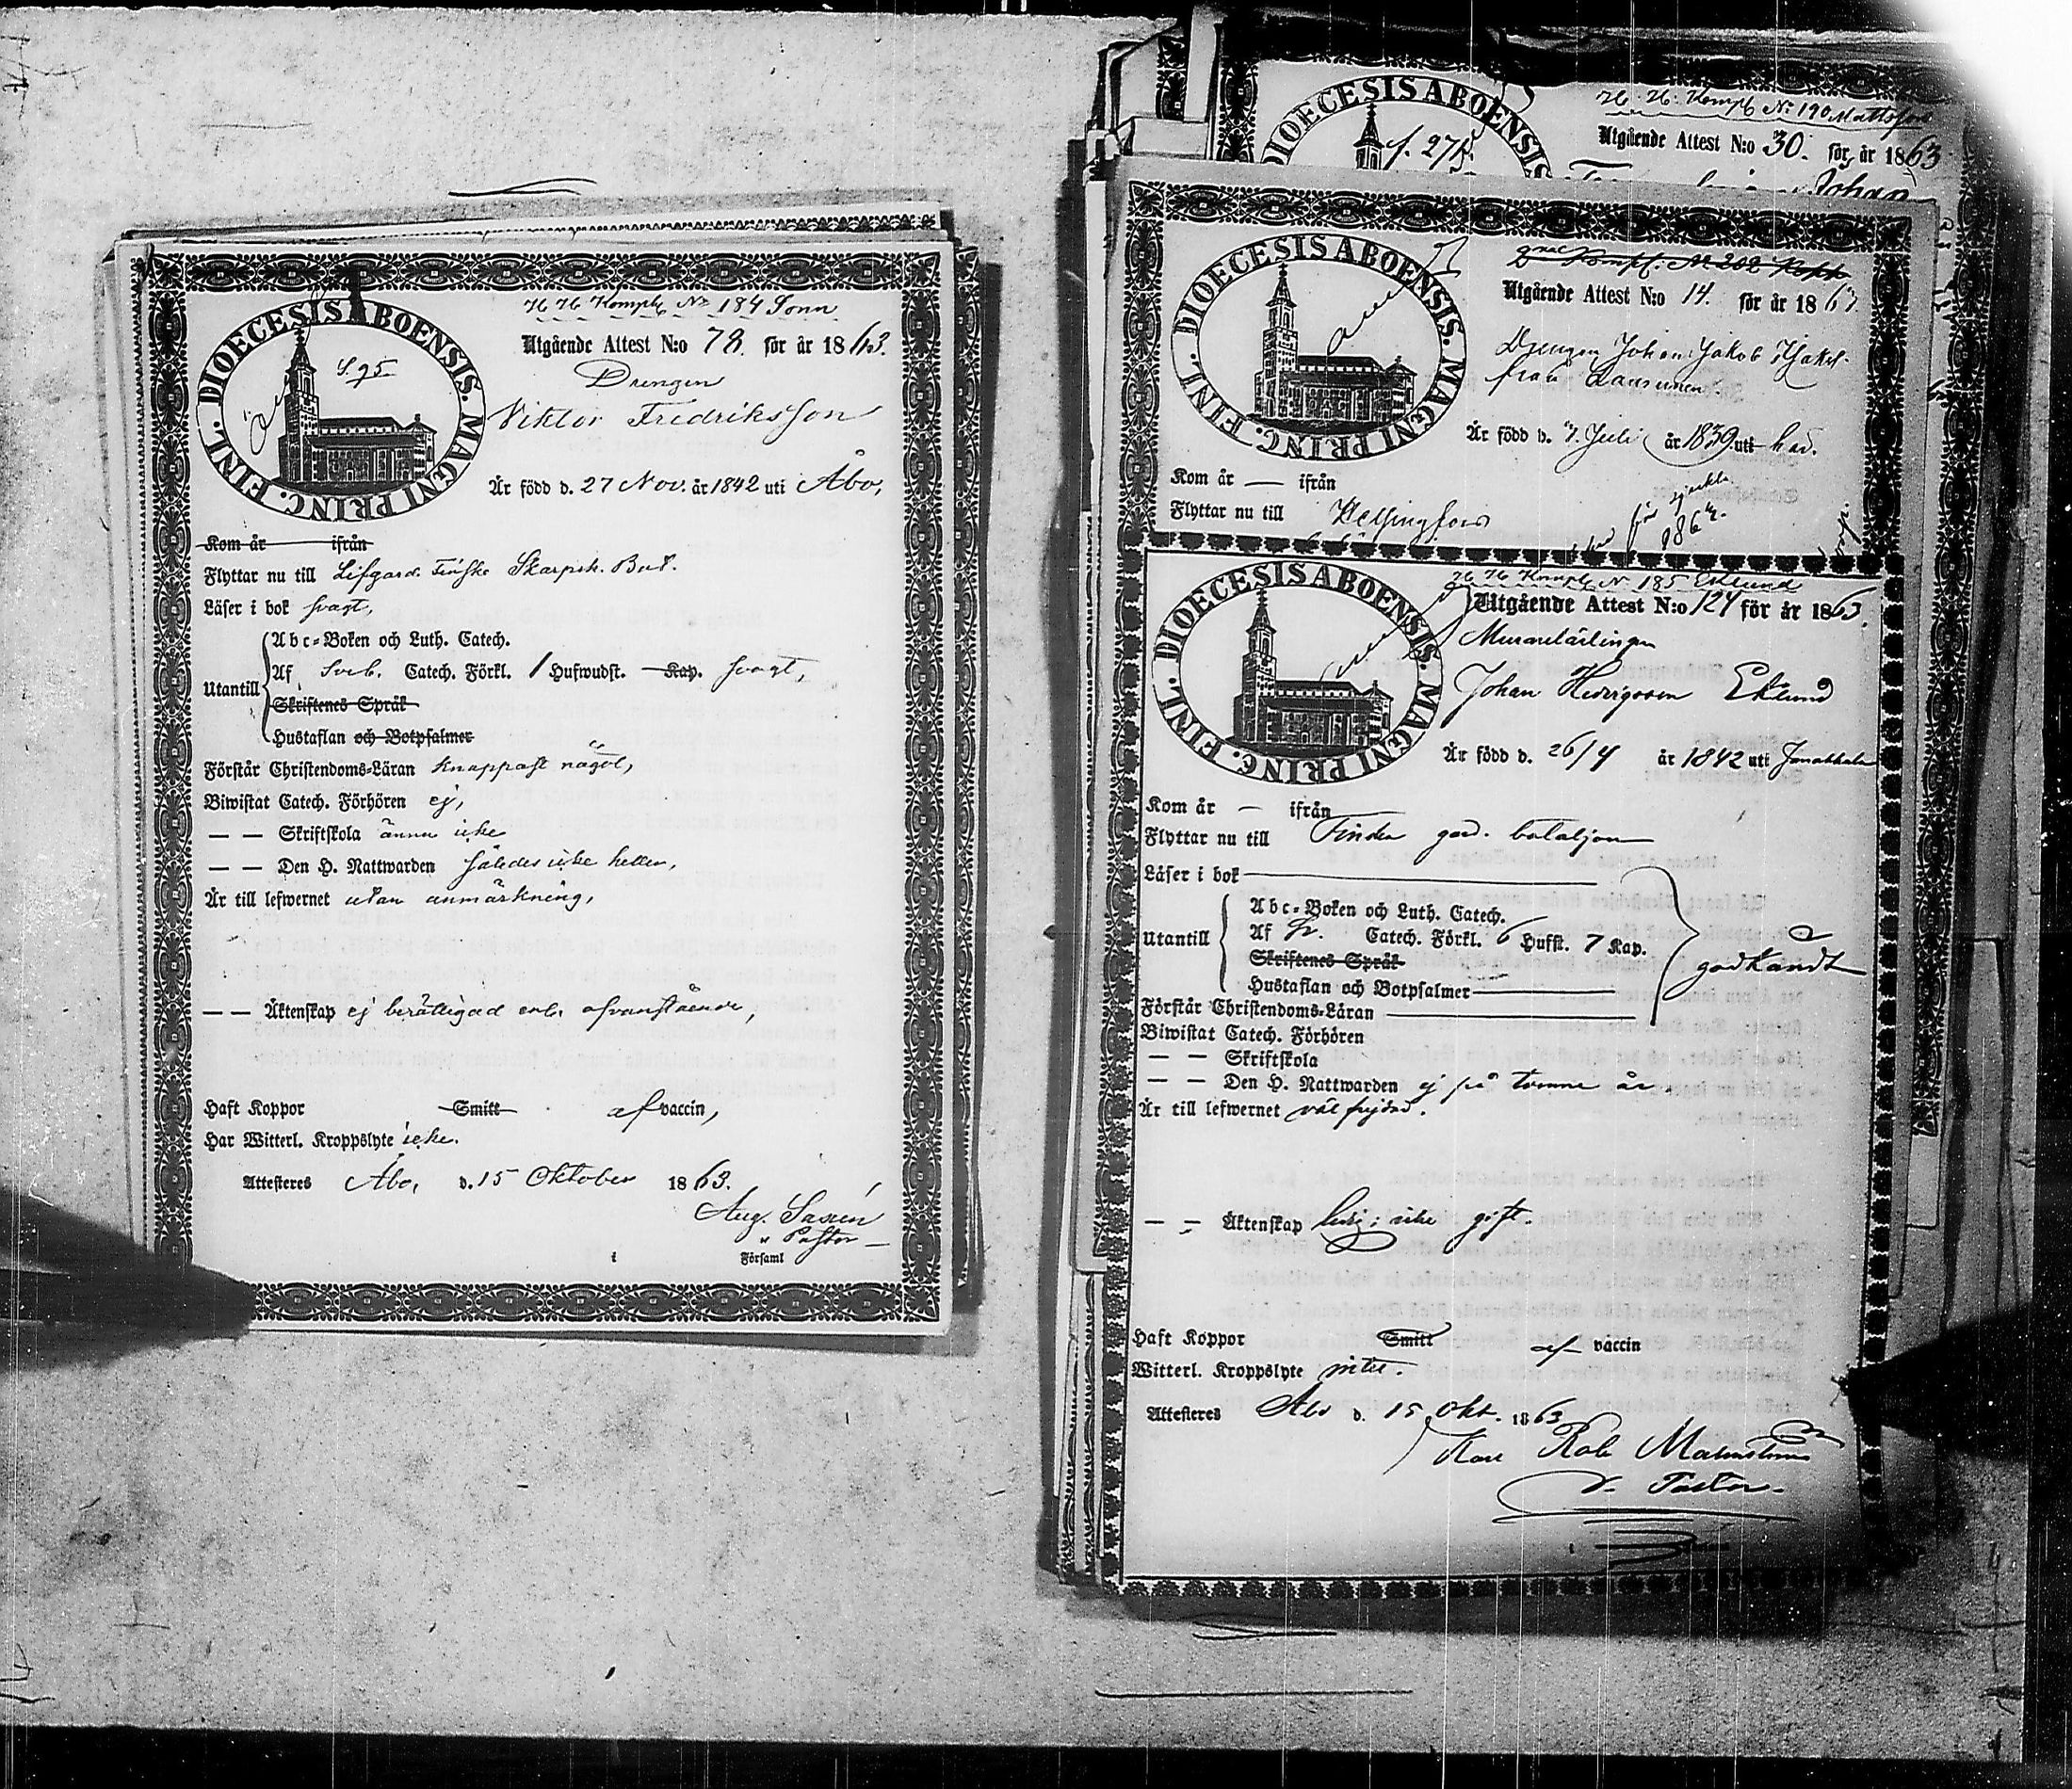 DIOECESIS ABOENSIS. MAGNI PRINC. FINL.
S. 95
H H Komp No 184 Sonn
Utgående Attest N:o 78. för år 1863.
Drengen
Viktor Fredriksson
Är född d. 27 Nov. år 1842 uti Åbo,
Kom år ifrån
Flyttar nu till Lifgard. Finska Skarpsk. Bat.
Läser i bok svagt,
Utantill
Abc-Boken och Luth. Catech.
Af Sveb. Catech. Förkl. 1 Hufwudst. Kap. svagt,
Skriftenes Språk
Hustaflan och Botpsalmer
Förstår Christendoms-Läran knappast något,
Biwistat Catech. Förhören ej,
— — Skriftskola ännu icke
— — Den H. Nattwarden således icke heller,
Är till lefwernet utan anmärkning,
— — Äktenskap ej berättigad enl. ofvanstående,
Haft Koppor Smitt af vaccin,
Har Witterl. Kroppslyte icke.
Attesteres Åbo, d. 15 Oktober 1863.
Aug.
Pastor
i Församl
DIOECESIS ABOENSIS
f. 271.
H. H. Komp No 190 Mattsson
Utgående Attest N:o 30. för år 1863
Johan
DIOECESIS ABOENSIS. MAGNI PRINC. FINL.
Komp. No 202
Utgående Attest N:o 14. för år 1863
Drengen Johan Jakob
från
Är född d. 7. Juli år 1839 uti
Kom år — ifrån
Flyttar nu till Helsingfors
DIOECESIS ABOENSIS. MAGNI PRINC. FINL.
H H Komp N 185 Eklund
Utgående Attest N:o 124 för år 1863.
Murarelärlingen
Johan Eklund
Är född d. 26/4 år 1842 uti Janakkala
Kom år — ifrån
Flyttar nu till Finska gard. bataljon
Läser i bok
Utantill
Abc-Boken och Luth. Catech.
Af Catech. Förkl. 6 Hufst. 7 Kap.
Skriftenes Språk
Hustaflan och Botpsalmer
godkändt
Förstår Christendoms-Läran
Biwistat Catech. Förhören
— — Skriftskola
— — Den H. Nattwarden ej på tvenne år
Är till lefwernet välfrejdad.
— — Äktenskap ledig; icke gift.
Haft Koppor Smitt af vaccin
Witterl. Kroppslyte intet.
Attesteres Åbo d. 15 Okt. 1863
Karl Rob. Malmström
v. Pastor.